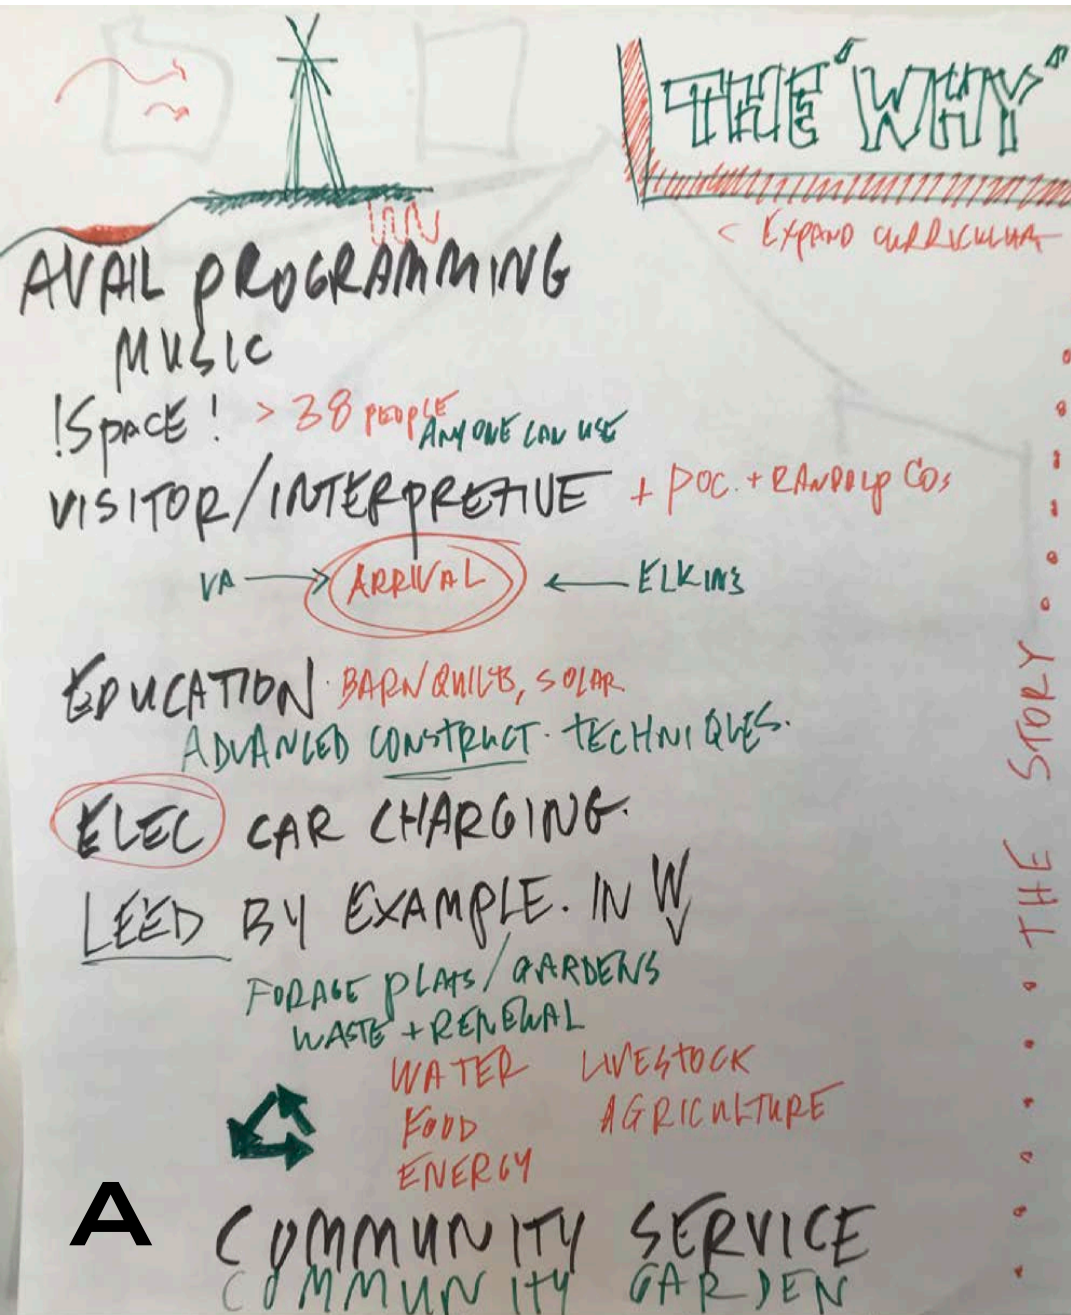 THE "WHY"
< EXPAND CURRICULUM
AVAIL PROGRAMMING
MUSIC
!SPACE! > 38 PEOPLE ANYONE CAN USE
VISITOR/INTERPRETIVE + POC. + RANDOLP COS
VA → ARRIVAL ← ELKINS
EDUCATION · BARN QUILTS, SOLAR
ADVANCED CONSTRUCT. TECHNIQUES.
ELEC CAR CHARGING.
LEED BY EXAMPLE. IN WV
FORAGE PLATS/GARDENS
WASTE + RENEWAL
WATER LIVESTOCK
FOOD AGRICULTURE
ENERGY
COMMUNITY SERVICE
COMMUNITY GARDEN
A
THE STORY